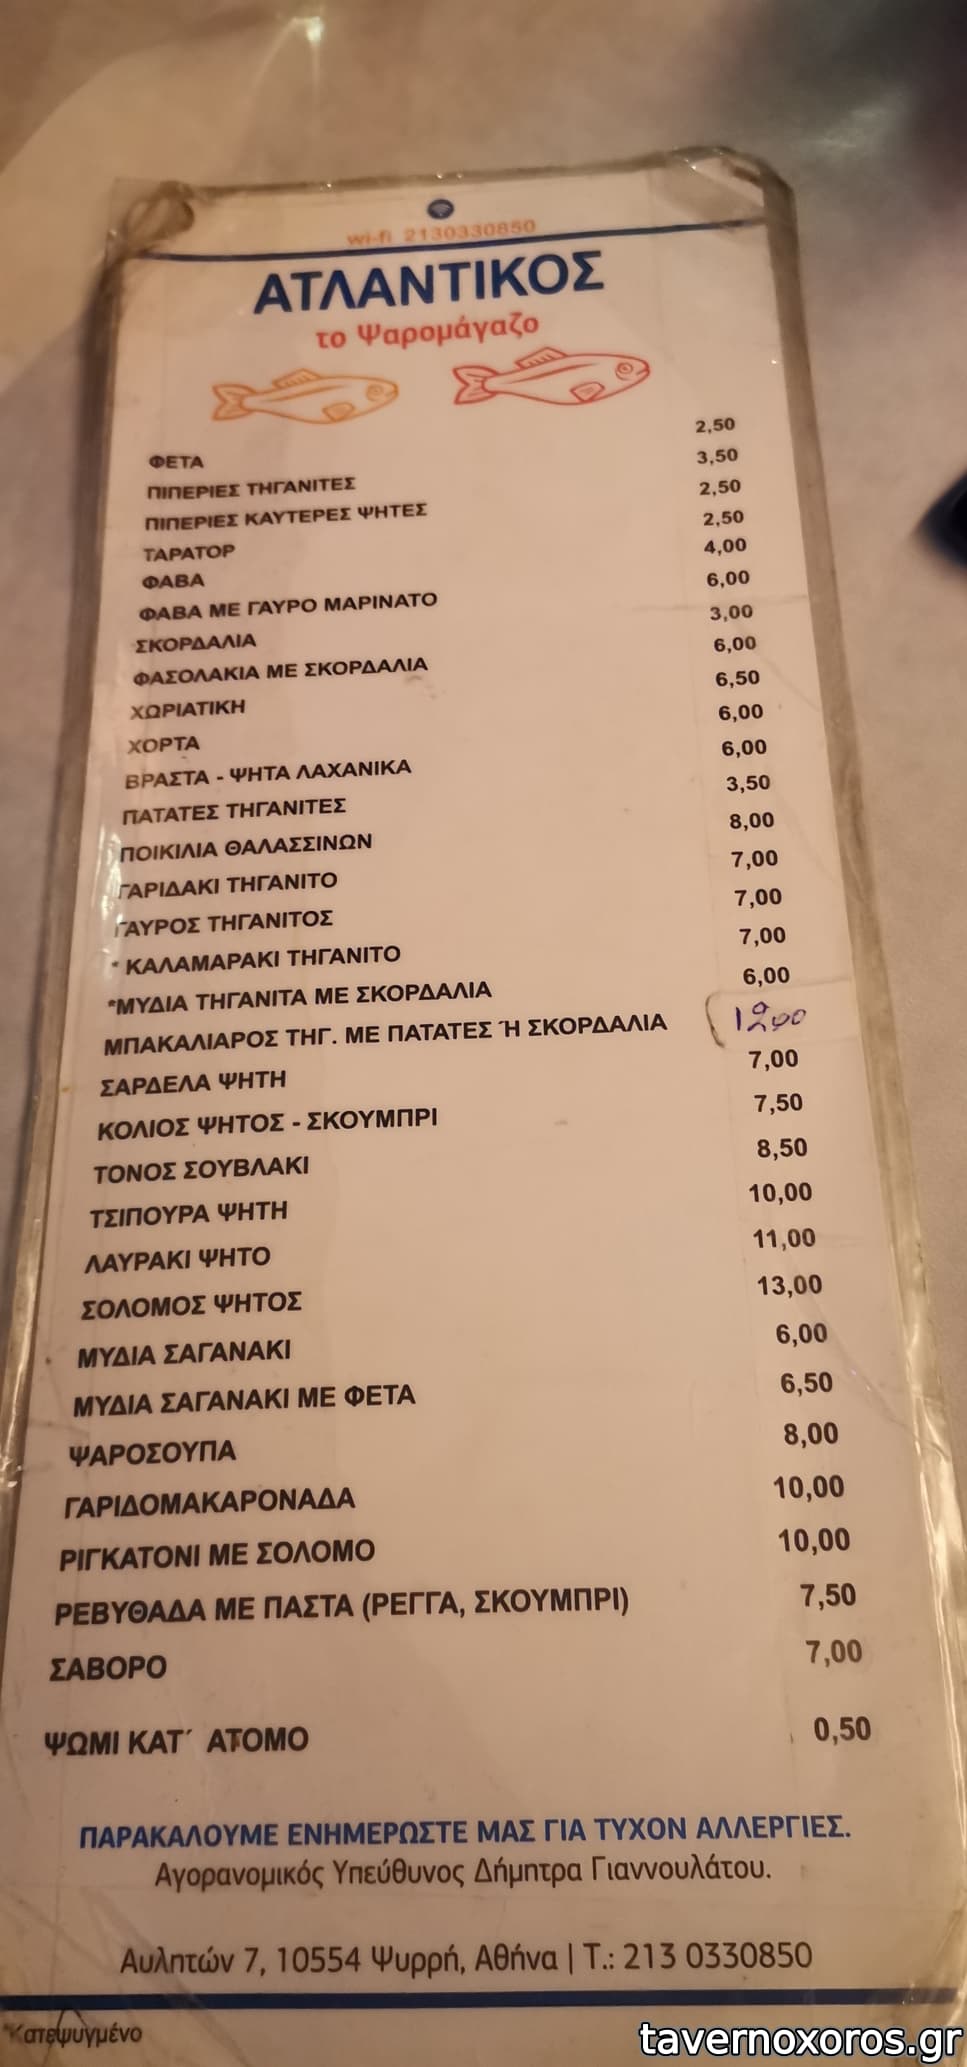 wi-fi 2130330850
ΑΤΛΑΝΤΙΚΟΣ
το Ψαρομάγαζο
ΦΕΤΑ 2,50
ΠΙΠΕΡΙΕΣ ΤΗΓΑΝΙΤΕΣ 3,50
ΠΙΠΕΡΙΕΣ ΚΑΥΤΕΡΕΣ ΨΗΤΕΣ 2,50
ΤΑΡΑΤΟΡ 2,50
ΦΑΒΑ 4,00
ΦΑΒΑ ΜΕ ΓΑΥΡΟ ΜΑΡΙΝΑΤΟ 6,00
ΣΚΟΡΔΑΛΙΑ 3,00
ΦΑΣΟΛΑΚΙΑ ΜΕ ΣΚΟΡΔΑΛΙΑ 6,00
ΧΩΡΙΑΤΙΚΗ 6,50
ΧΟΡΤΑ 6,00
ΒΡΑΣΤΑ - ΨΗΤΑ ΛΑΧΑΝΙΚΑ 6,00
ΠΑΤΑΤΕΣ ΤΗΓΑΝΙΤΕΣ 3,50
ΠΟΙΚΙΛΙΑ ΘΑΛΑΣΣΙΝΩΝ 8,00
ΓΑΡΙΔΑΚΙ ΤΗΓΑΝΙΤΟ 7,00
ΓΑΥΡΟΣ ΤΗΓΑΝΙΤΟΣ 7,00
* ΚΑΛΑΜΑΡΑΚΙ ΤΗΓΑΝΙΤΟ 7,00
*ΜΥΔΙΑ ΤΗΓΑΝΙΤΑ ΜΕ ΣΚΟΡΔΑΛΙΑ 6,00
ΜΠΑΚΑΛΙΑΡΟΣ ΤΗΓ. ΜΕ ΠΑΤΑΤΕΣ Ή ΣΚΟΡΔΑΛΙΑ 12,00
ΣΑΡΔΕΛΑ ΨΗΤΗ 7,00
ΚΟΛΙΟΣ ΨΗΤΟΣ - ΣΚΟΥΜΠΡΙ 7,50
ΤΟΝΟΣ ΣΟΥΒΛΑΚΙ 8,50
ΤΣΙΠΟΥΡΑ ΨΗΤΗ 10,00
ΛΑΥΡΑΚΙ ΨΗΤΟ 11,00
ΣΟΛΟΜΟΣ ΨΗΤΟΣ 13,00
ΜΥΔΙΑ ΣΑΓΑΝΑΚΙ 6,00
ΜΥΔΙΑ ΣΑΓΑΝΑΚΙ ΜΕ ΦΕΤΑ 6,50
ΨΑΡΟΣΟΥΠΑ 8,00
ΓΑΡΙΔΟΜΑΚΑΡΟΝΑΔΑ 10,00
ΡΙΓΚΑΤΟΝΙ ΜΕ ΣΟΛΟΜΟ 10,00
ΡΕΒΥΘΑΔΑ ΜΕ ΠΑΣΤΑ (ΡΕΓΓΑ, ΣΚΟΥΜΠΡΙ) 7,50
ΣΑΒΟΡΟ 7,00
ΨΩΜΙ ΚΑΤ΄ ΑΤΟΜΟ 0,50
ΠΑΡΑΚΑΛΟΥΜΕ ΕΝΗΜΕΡΩΣΤΕ ΜΑΣ ΓΙΑ ΤΥΧΟΝ ΑΛΛΕΡΓΙΕΣ.
Αγορανομικός Υπεύθυνος Δήμητρα Γιαννουλάτου.
Αυλητών 7, 10554 Ψυρρή, Αθήνα | Τ.: 213 0330850
*Κατεψυγμένο
tavernoxoros.gr